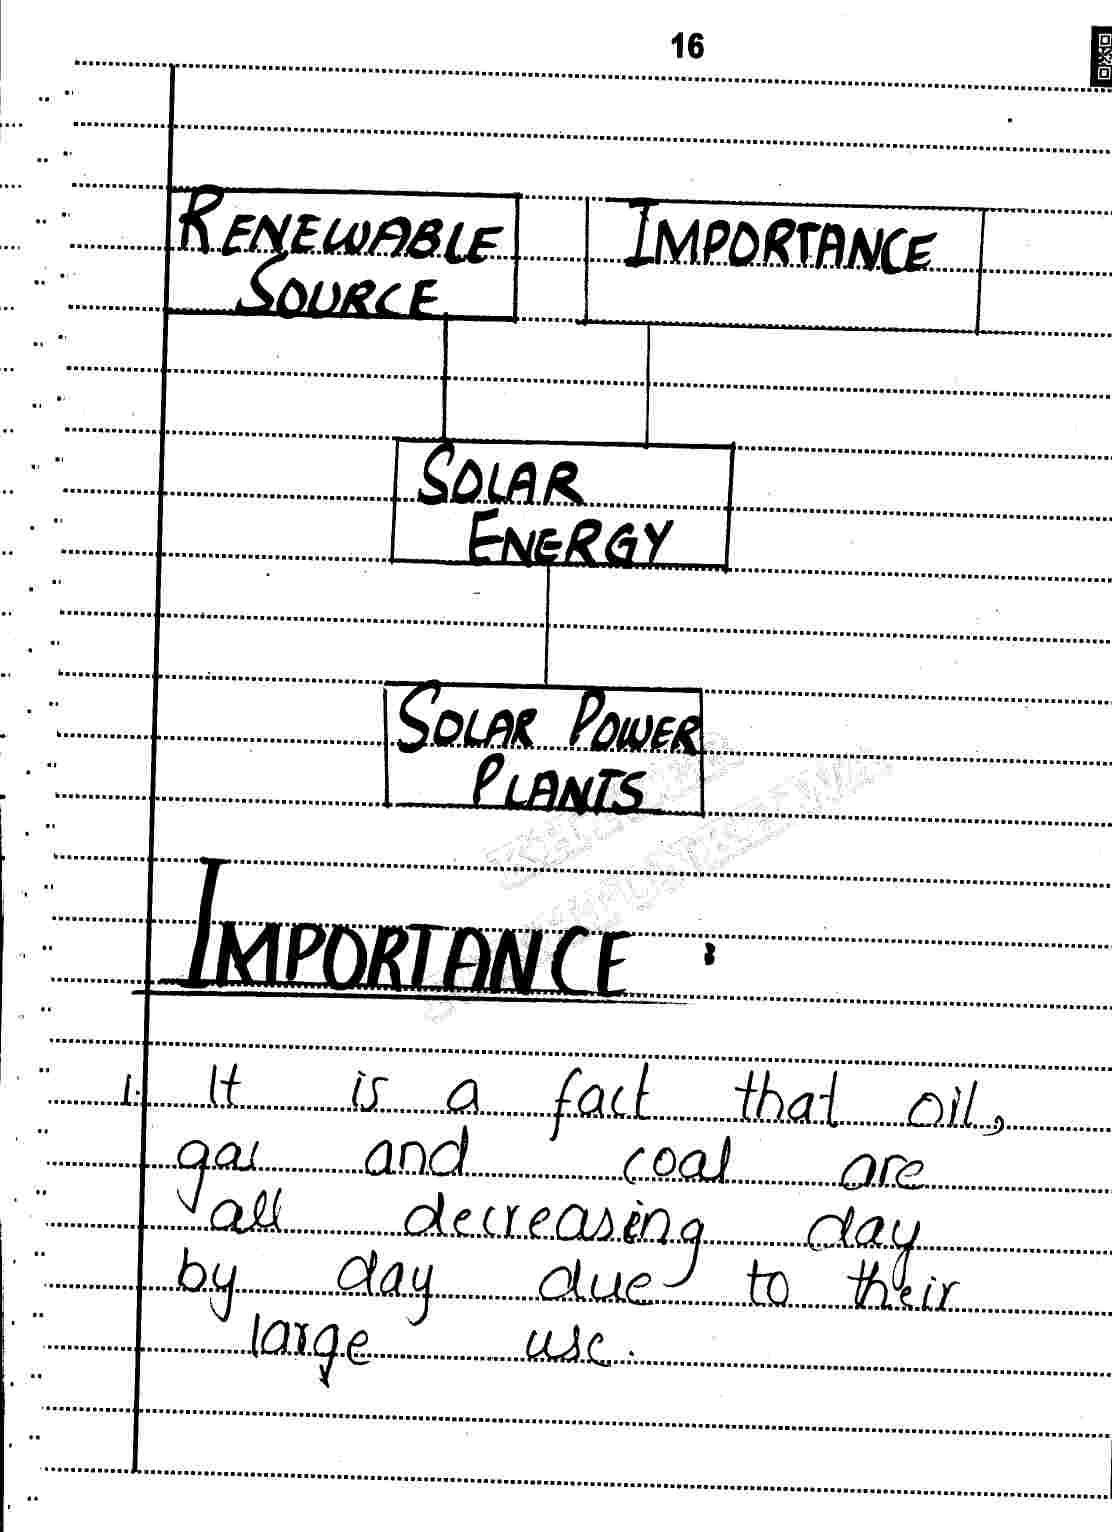 16
RENEWABLE
SOURCE
IMPORTANCE
SOLAR
ENERGY
SOLAR POWER
PLANTS
IMPORTANCE :
1. It is a fact that oil,
gas and coal are
all decreasing day
by day due to their
large use.